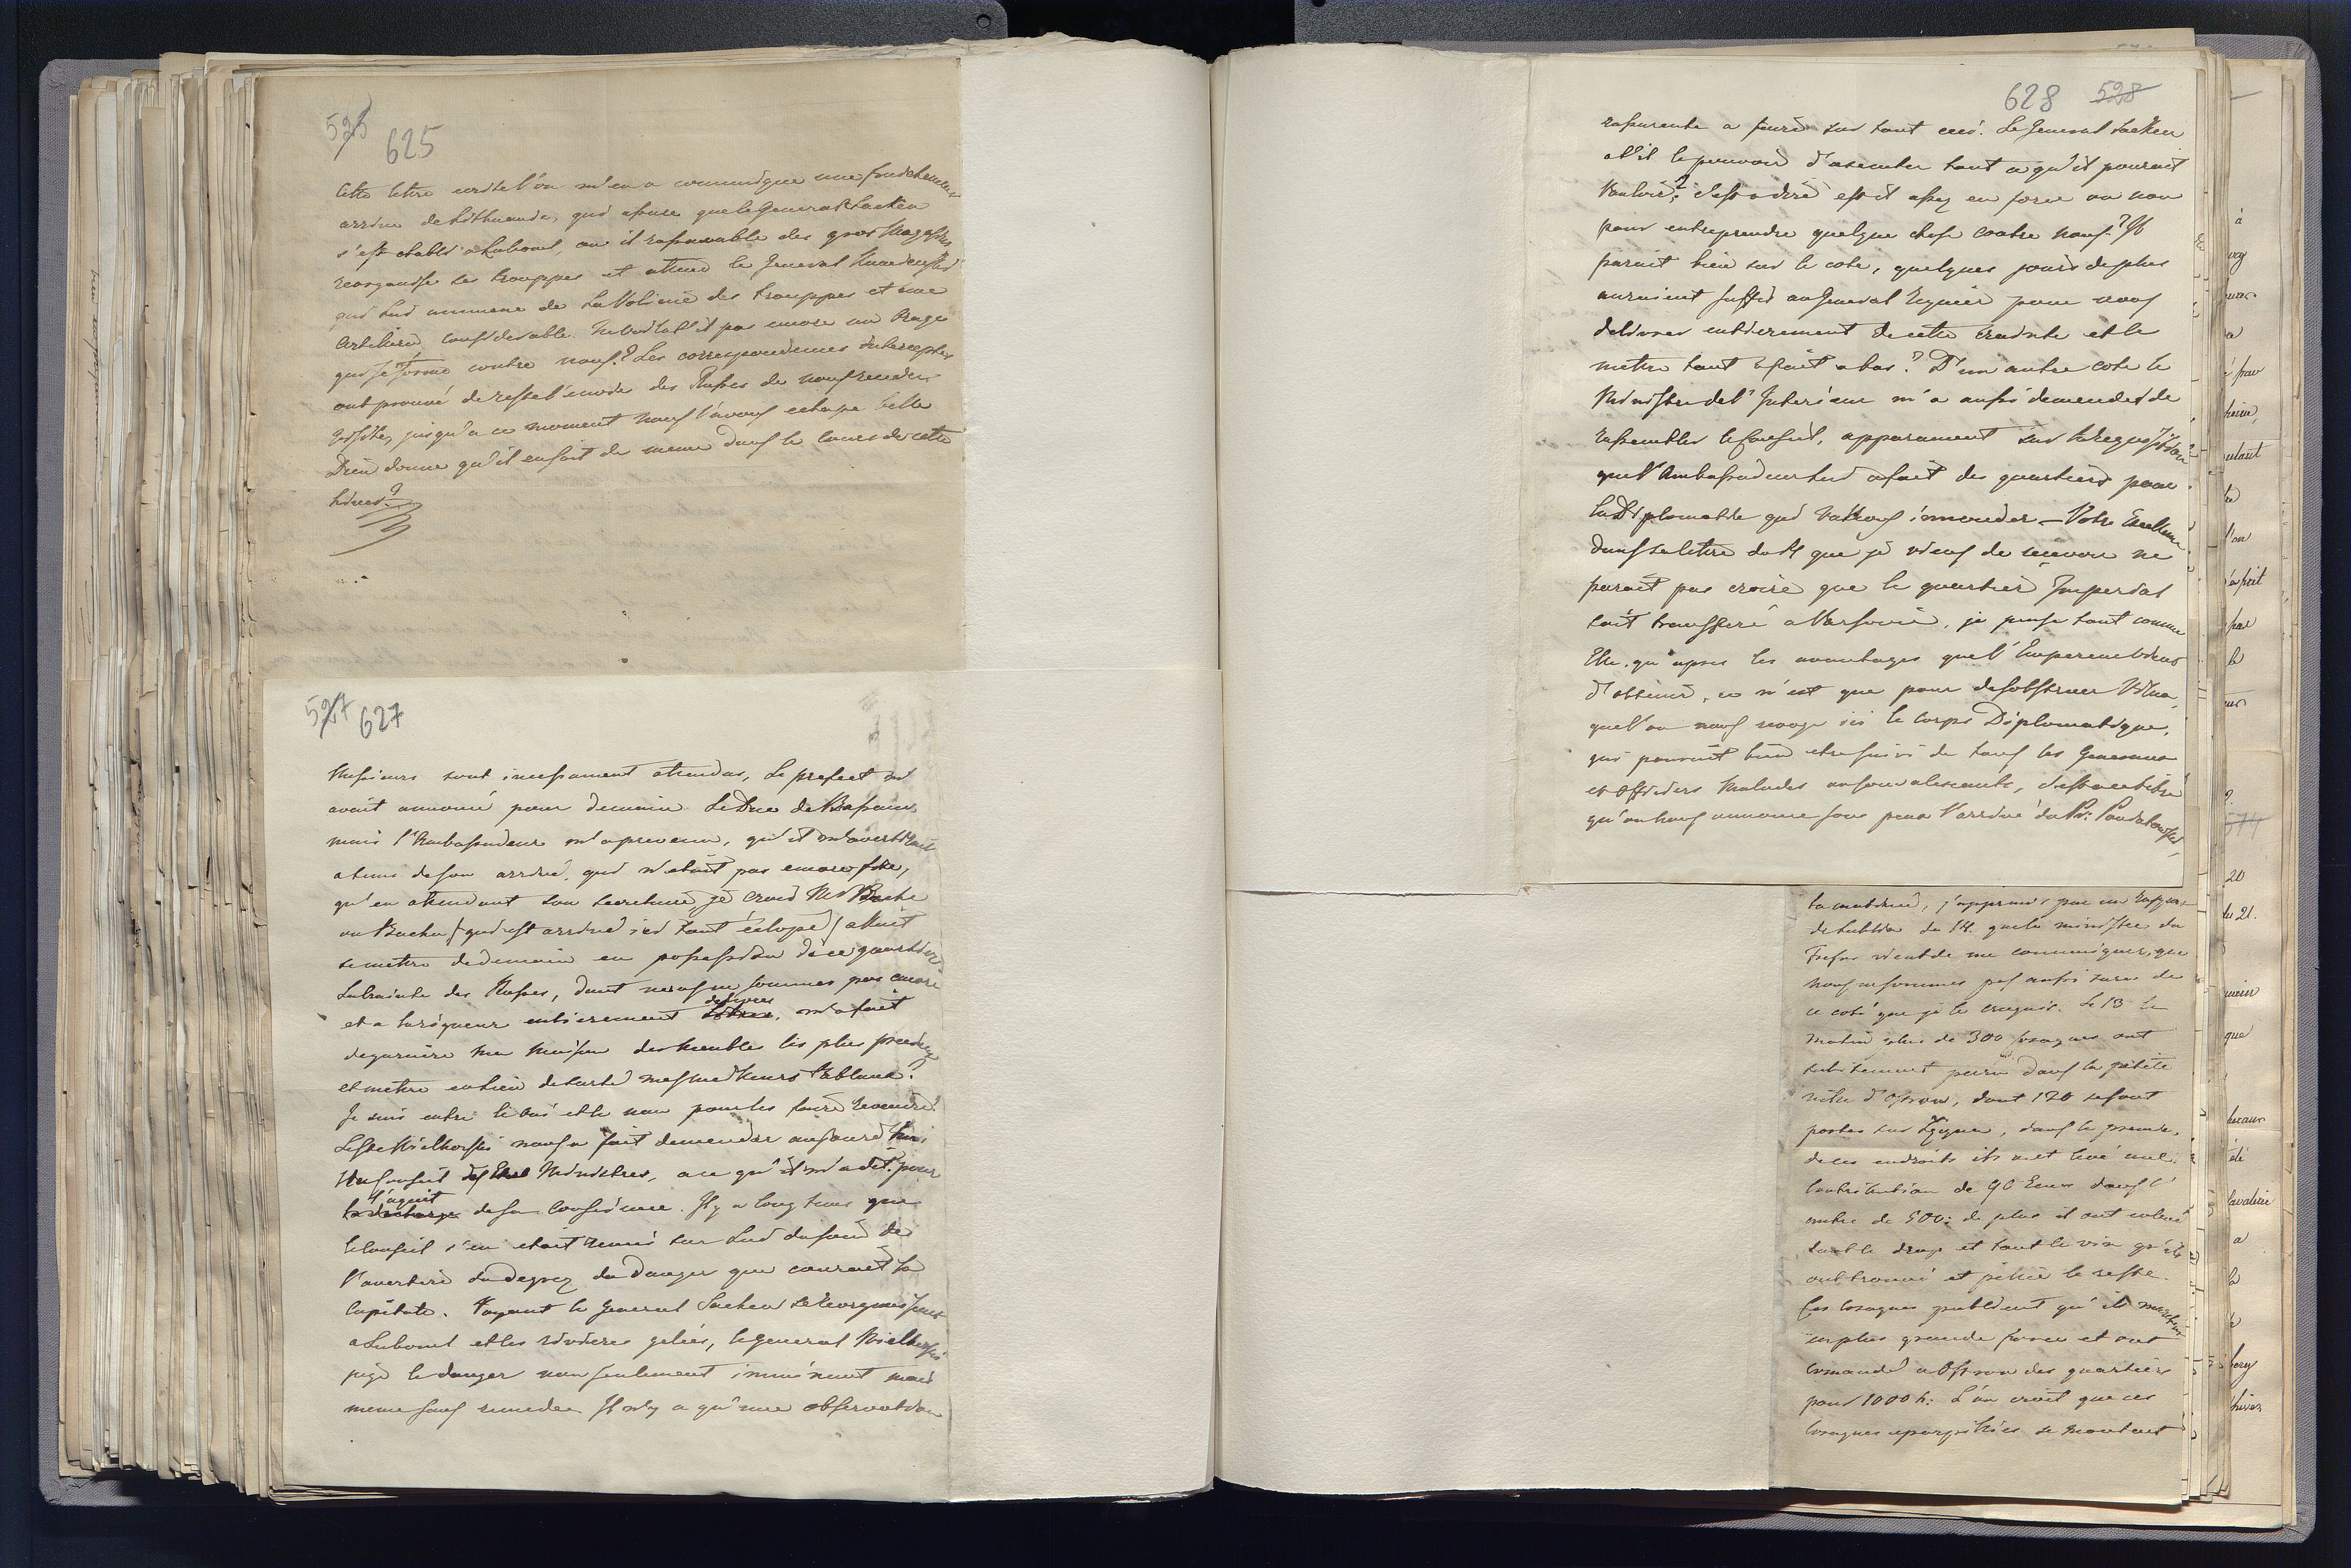 525 625
Cette lettre ecrite l'on m'en a communiqué une
arrivee de Lithuanie, qui assure que le General Sacken
s'est etabli a Luboml, ou il rassemble des gros Magasins
reorganise ses trouppes et attend le General
qui lui ammene de la Volinie des trouppes et une
Artillerie considerable. pas encore un Orage
qui se forme contre nous? Les correspondences interceptes
ont prouvé de reste l'envie des Russes de nous rendre
visite, jusqu'a ce moment nous l'avons echape belle
Dieu donne qu'il en soit de meme dans le cours de cette
hiver?
527 627
Messieurs sont incessament attendus, Le prefect m'
avait annoncé pour demain Le Duc de Bassano
mais l'Ambassadeur m'a prevenu, qu'il m'avertirait
a tems de son arrivé, qui n'etait pas encore fixé,
qu'en attendant son secretaire, je crois Mr Bache
ou Bacher / qui est arrivé ici tout éclopé / allait
se mettre de demain en possession de ce quartier
La crainte des Russes, dont nous ne sommes pas encore
et a la rigueur entierement delivres, m'a fait
degarnire ma Maison des Meubles les plus precieux
et mettre en lieu de surté mes meilleurs tableaux.
Je suis entre le oui et le non pour les faire revenire.
Le Gle Wielhorski nous a fait demender aujourd'hui
un Conseil des Ministres, a ce qu'il m'a dit, pour
l'aquit
la decharge de sa Conscience. Il y a long tems que
le Conseil s'en etait remis sur lui du soin de
l'avertire du degrez du Danger que courait la
Capitale. Voyant le General Sacken se reorganisant
a Luboml et les rivieres gelées, le general Wielhorski
juge le danger non seulement imminent mais
meme sans remede. Il n'y a qu'une observation
628 528
rassurente a faire sur tout ceci. Le General Sacken
at'il le pouvoir d'executer tout ce qu'il pourait
Vouloir? c'est a dire est il assez en force ou non
pour entreprendre quelque chose contre nous? Il
parait bien sur le cote, quelques jours de plus
auraient suffis au General Regnier pour nous
delivrer entierement de cette crainte et le
mettre tout a fait a bas? D'un autre cote le
Ministre de l'Interieur m'a aussi demendé de
rassembler le Conseil, apparament sur la requisition
que l'Ambassadeur lui a fait des quartiers pour
la Diplomatie qui va nous innonder — Votre Excellence
dans sa lettre du 14 que je viens de recevoir ne
parait pas croire que le quartier Imperial
soit transferé a Varsovie, je pense tout comme
Elle, qu'apres les avantages que l'Empereur vient
d'obtenir, ce n'est que pour desobstruer Vilna,
que l'on nous envoye ici le Corps Diplomatique,
qui pourait bien etre suivi de tous les Generaux
et Officiers Malades ou convalescents, c'est a ce titre
qu'on nous annonce sous peu l'arrivé du Pr: Poniatowski,
la matinée, j'apprends par un raport
de Lublin du 14. que le ministre du
Tresor vient de me communiquer, que
nous ne sommes pas aussi surs de
ce coté que je le croyais. Le 13 le
matin plus de 300 Cosaques ont
subitement paru dans la petite
ville d'Ostrow, dont 120 se sont
portes sur , dans le premier
de ces endroits ils ont levé une
Contribution de 90 Ecus dans l'
autre de 500: de plus il ont enlevé
tout le drap et tout le vin qu'ils
ont trouvé et pillé le reste.
Ces Cosaques publient qu'ils marchent
en plus grande force et ont
comandé a Ostrow des quartiers
pour 1000 h: L'on croit que ces
Cosaques eparpillés se montent